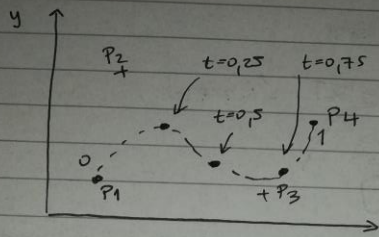 y
P2
+
t=0,25
t=0,75
t=0,5
P4
1
0
P1
+ P3